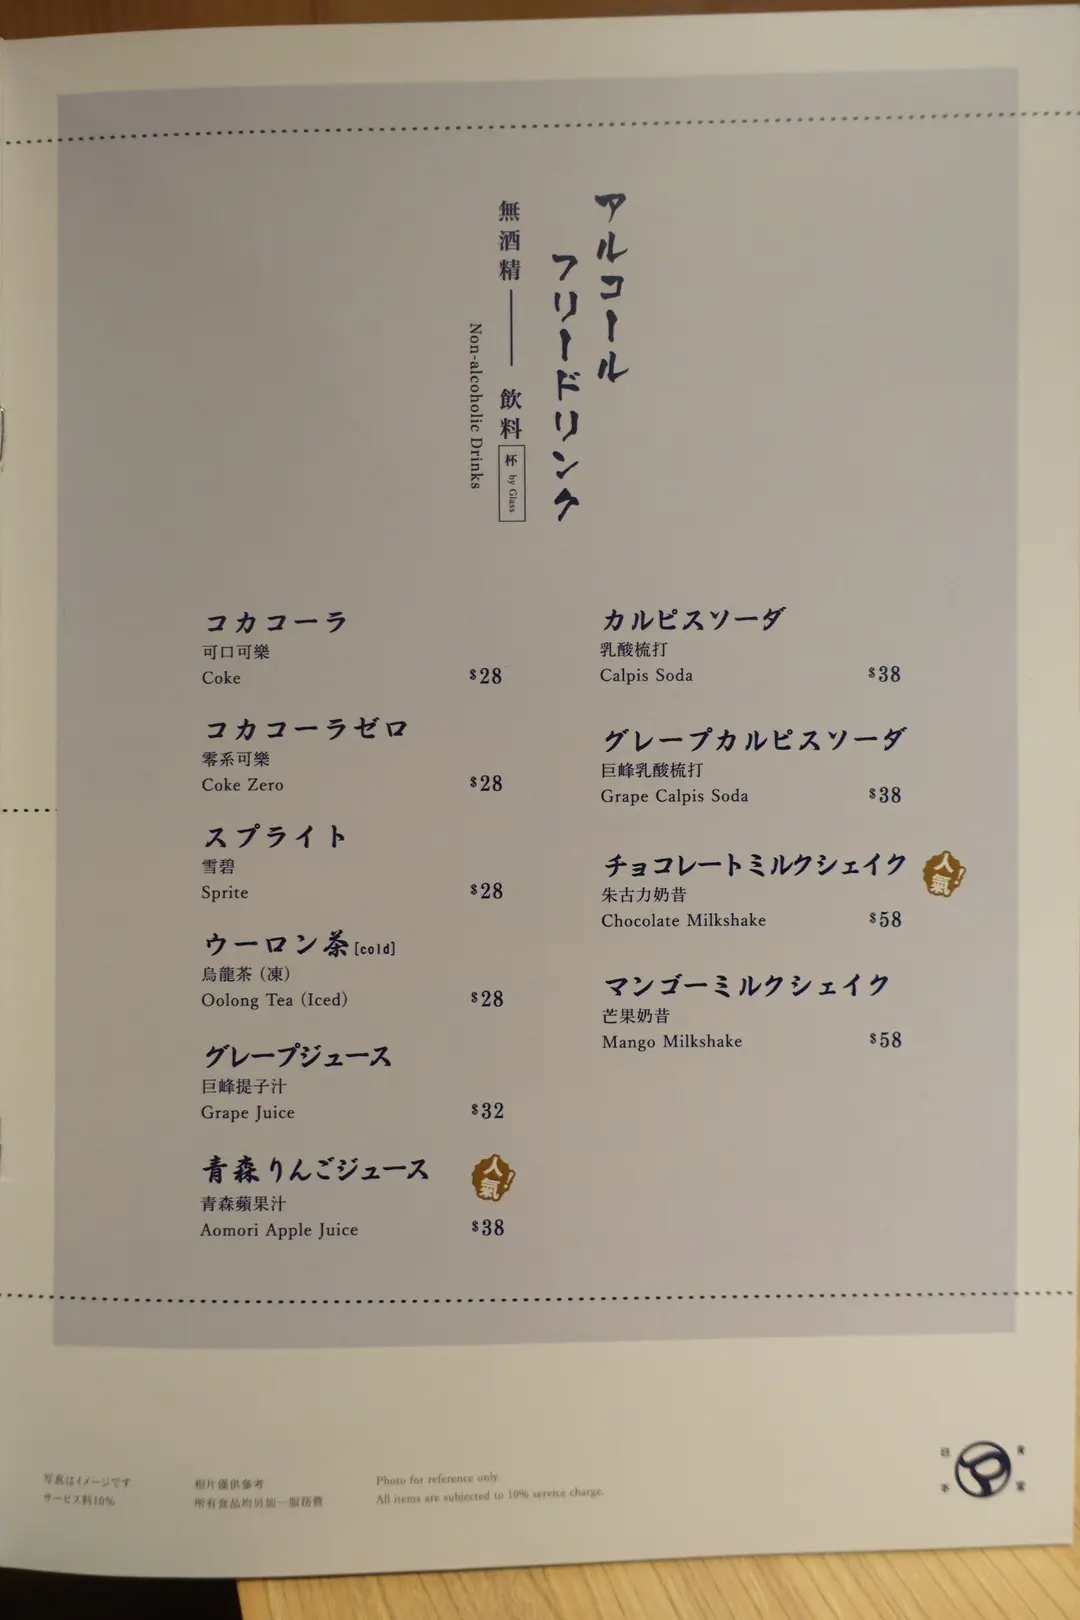 アルコール
フリードリンク
無酒精 — 飲料
杯 by Glass
Non-alcoholic Drinks
コカコーラ
可口可樂
Coke $28
コカコーラゼロ
零系可樂
Coke Zero $28
スプライト
雪碧
Sprite $28
ウーロン茶[cold]
烏龍茶（凍）
Oolong Tea (Iced) $28
グレープジュース
巨峰提子汁
Grape Juice $32
青森りんごジュース
人氣!
青森蘋果汁
Aomori Apple Juice $38
カルピスソーダ
乳酸梳打
Calpis Soda $38
グレープカルピスソーダ
巨峰乳酸梳打
Grape Calpis Soda $38
チョコレートミルクシェイク
人氣!
朱古力奶昔
Chocolate Milkshake $58
マンゴーミルクシェイク
芒果奶昔
Mango Milkshake $58
写真はイメージです
サービス料10%
相片僅供參考
所有食品均另加一服務費
Photo for reference only.
All items are subjected to 10% service charge.